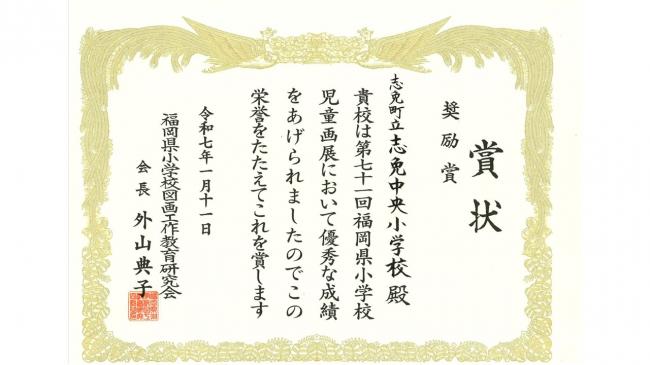 賞状
奨励賞
志免町立志免中央小学校殿
貴校は第七十一回福岡県小学校
児童画展において優秀な成績
をあげられましたのでこの
栄誉をたたえてこれを賞します
令和七年一月十一日
福岡県小学校図画工作教育研究会
会長 外山典子